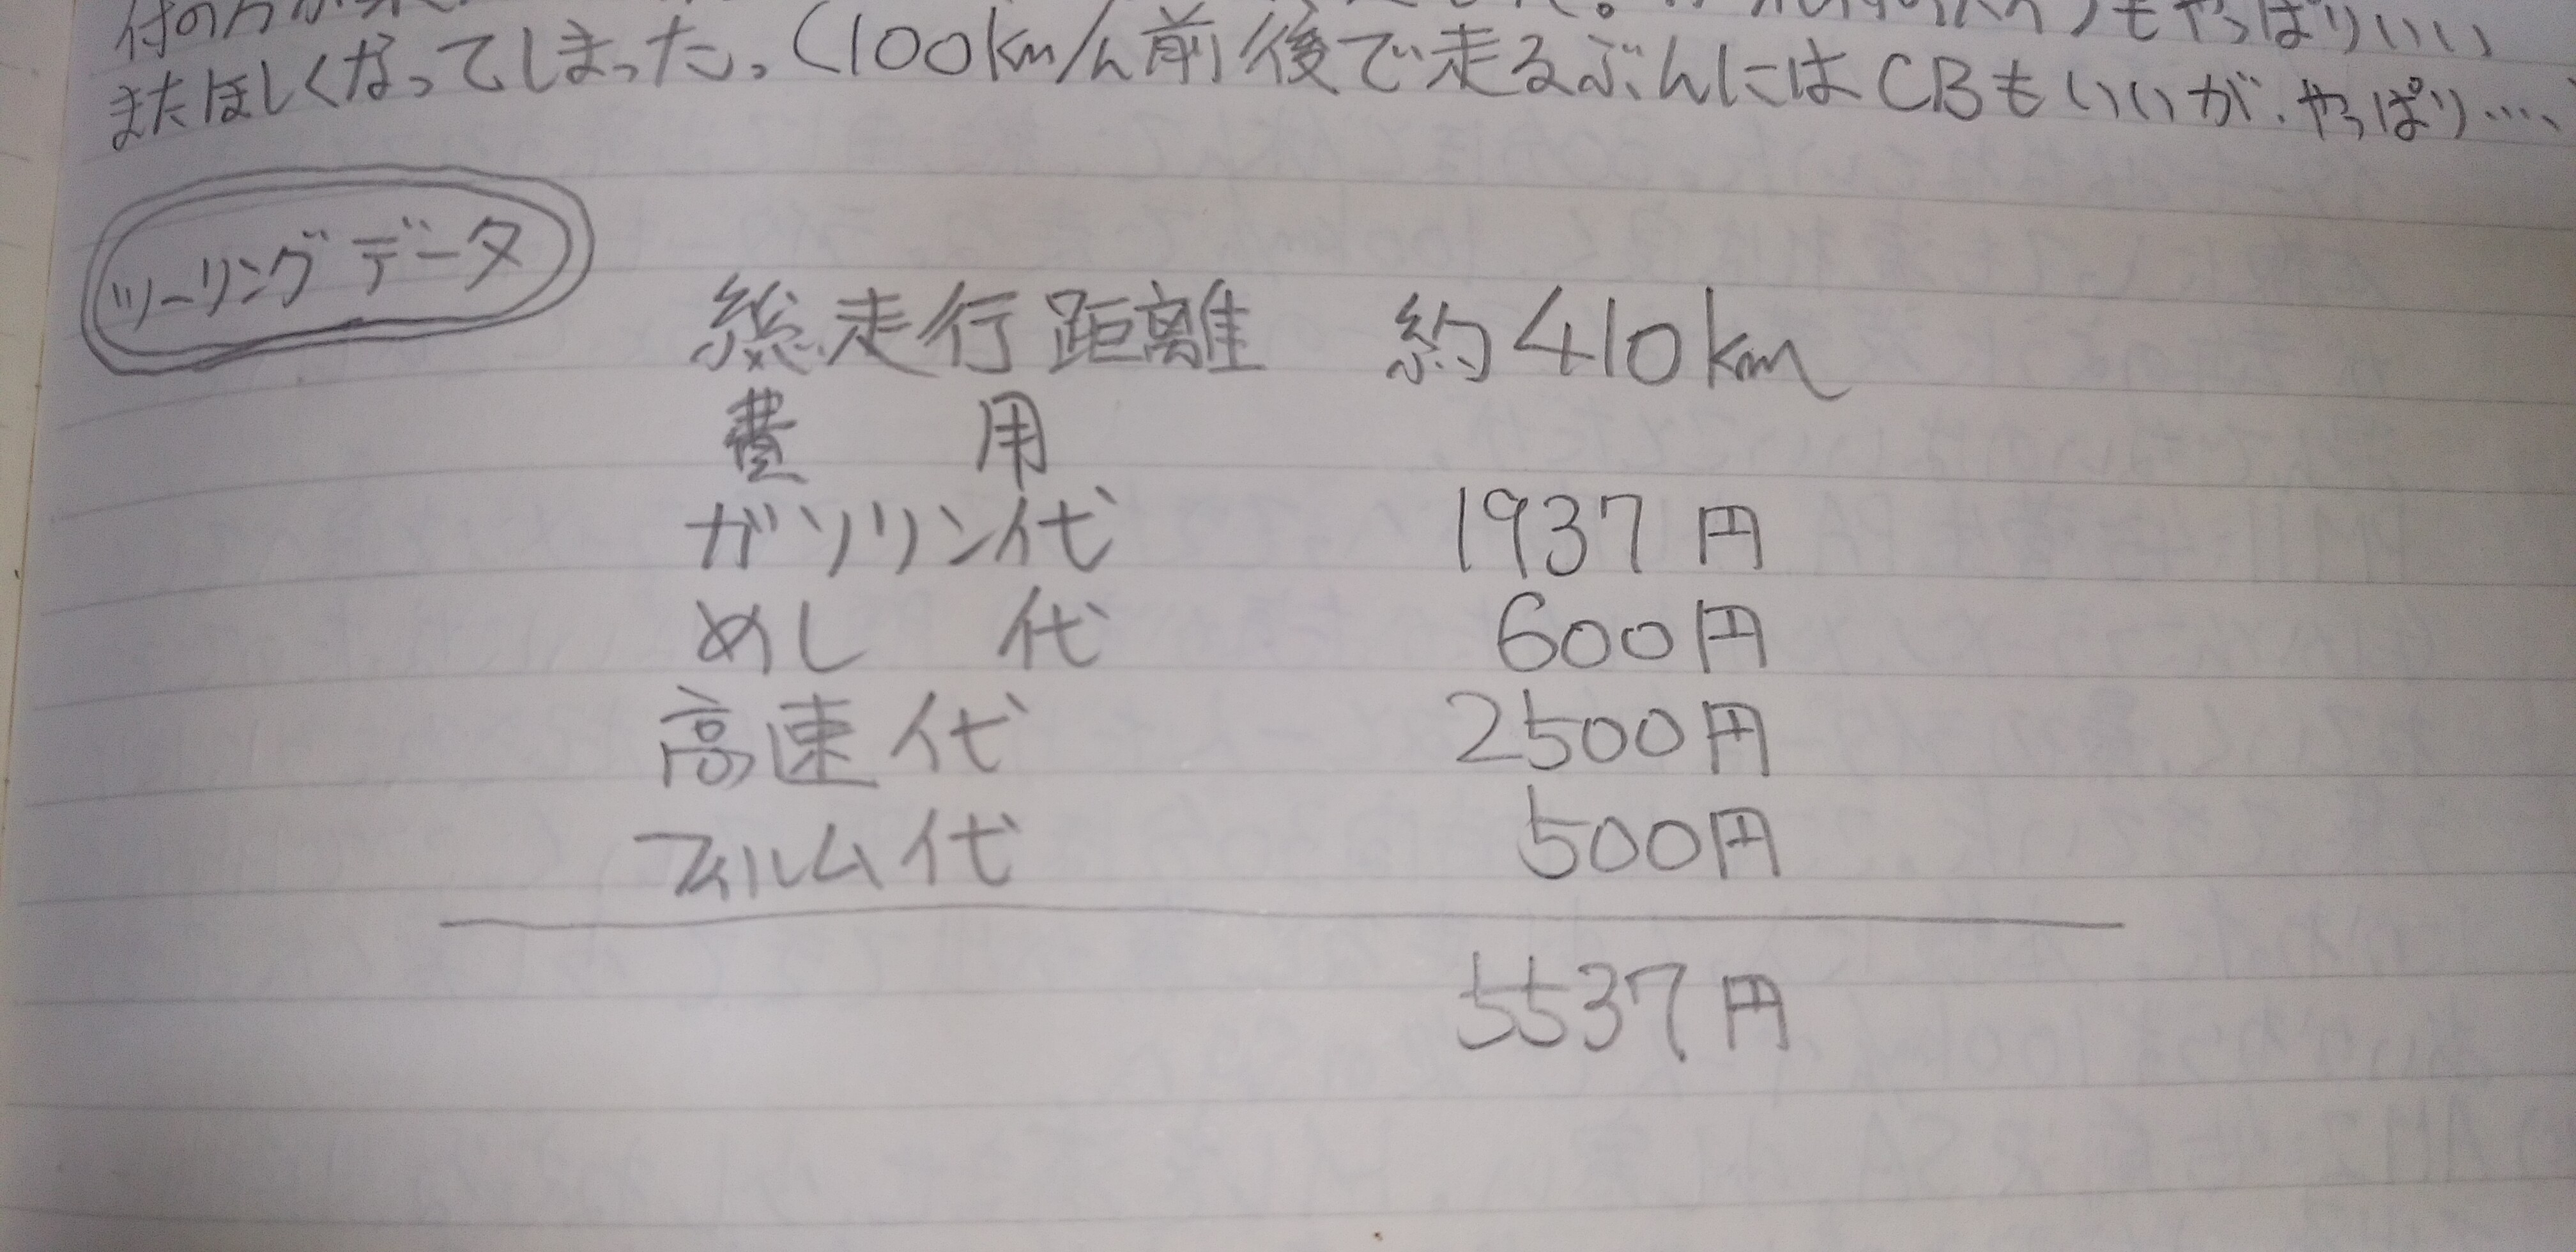 もやっぱりいい
またほしくなってしまった。(100km/h前後で走るぶんにはCBもいいが、やっぱり‥‥、
ツーリングデータ
総走行距離 約410km
費用
ガソリン代 1937円
めし代 600円
高速代 2500円
フィルム代 500円
5537円